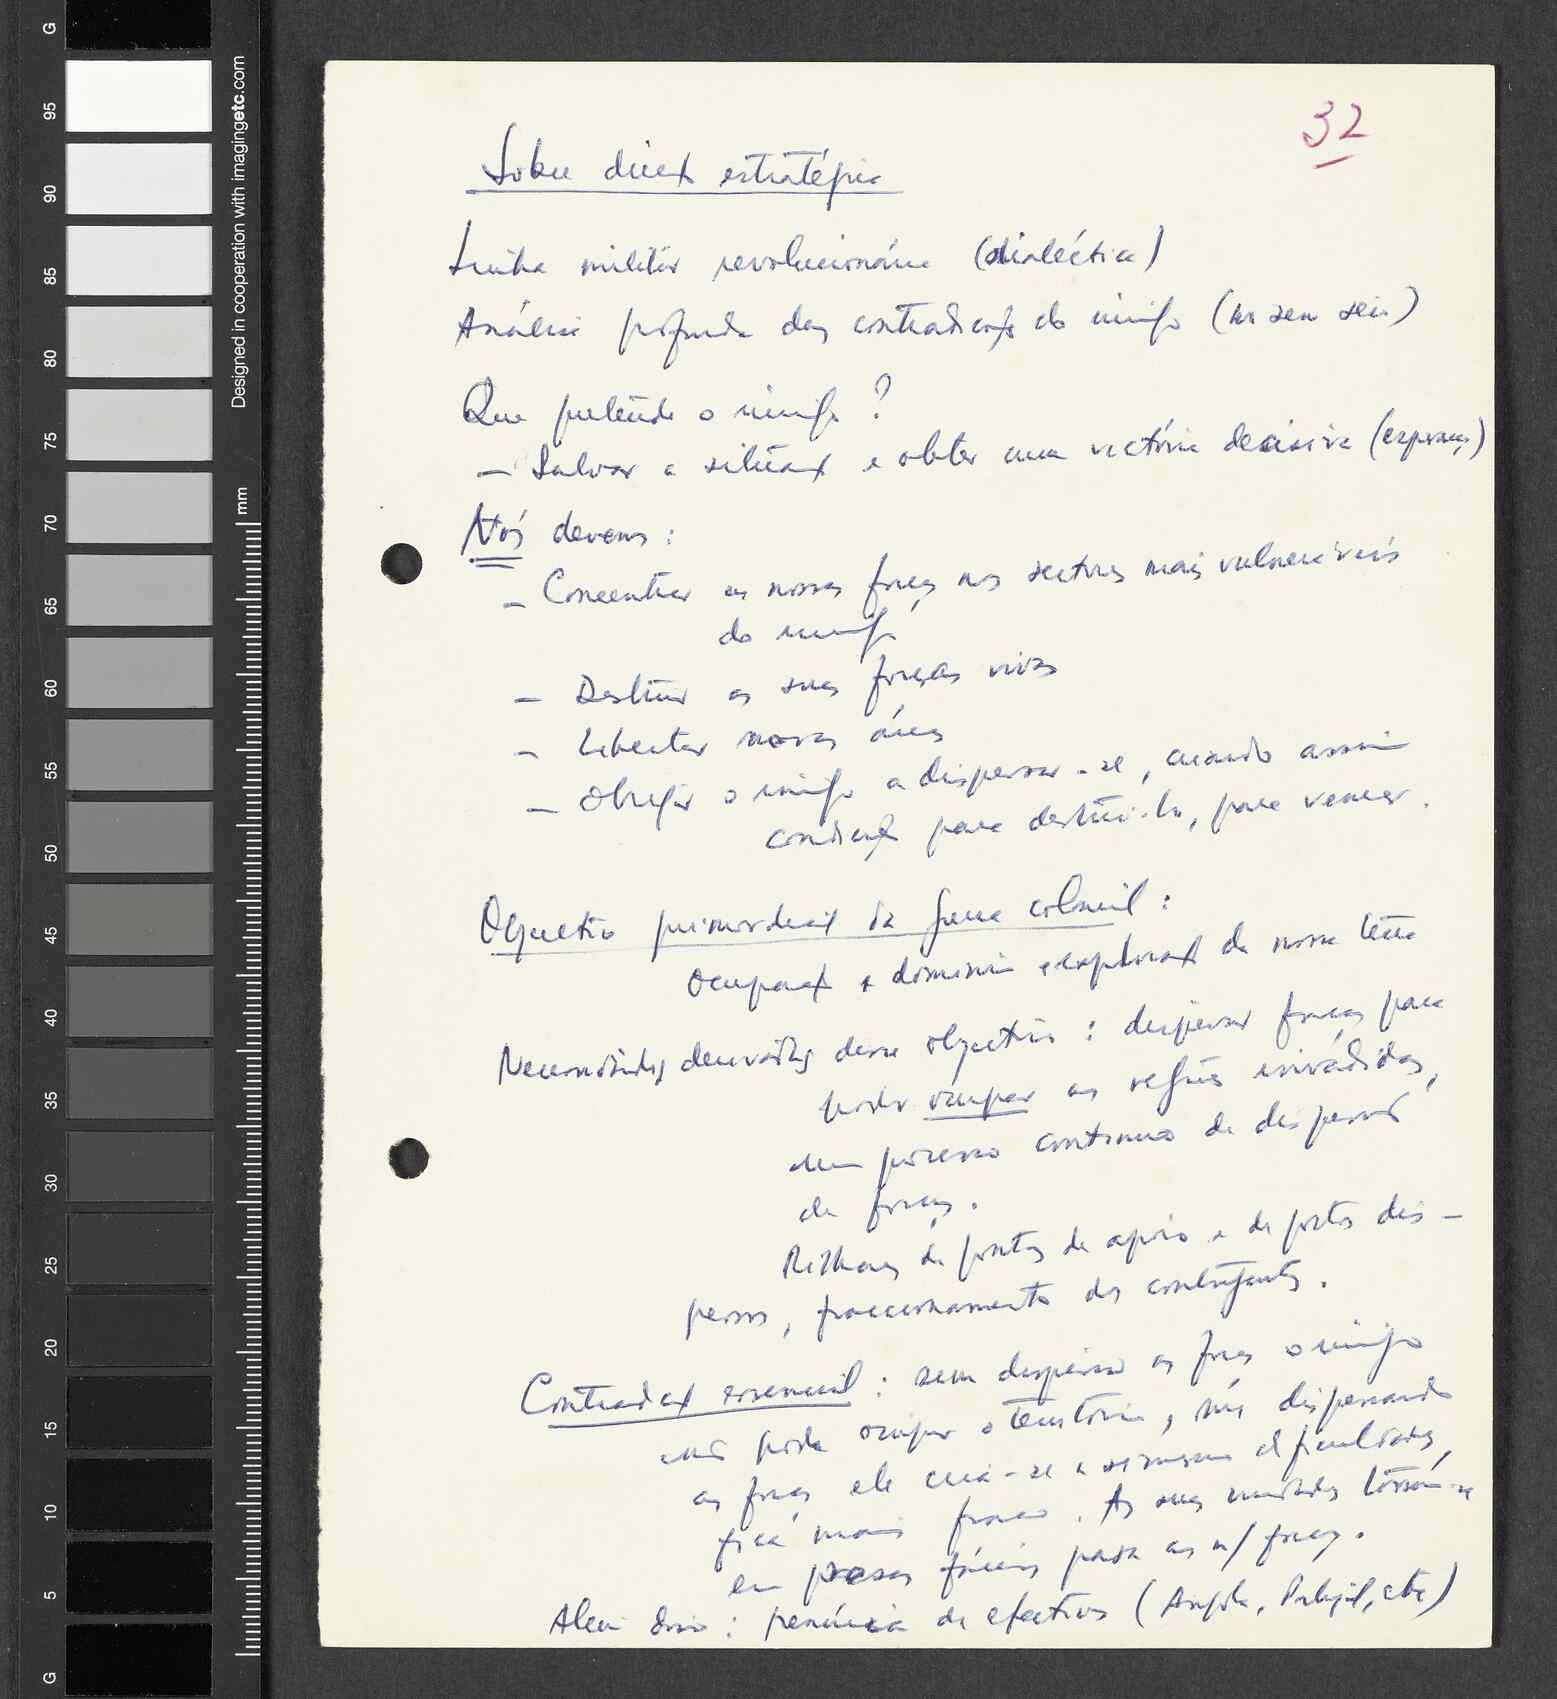 32
Sobre direcç estratégica
Linha militar revolucionária (dialéctica)
Análise profunda das contradições do inimigo (no seu seio)
Que pretende o inimigo?
— Salvar a situação e obter uma victória decisiva (esperança)
Nós devemos:
– Concentrar as nossas forças nos sectores mais vulneráveis
do inimigo
– Destruir as suas forças vivas
– Libertar novas áreas
– Obrigar o inimigo a dispersar-se, criando assim
condições para destrui-lo, para vencer.
Objectivo primordial da guerra colonial:
Ocupação e domínio e exploração da nossa terra
Necessidades derivadas desse objectivo: dispersar forças para
poder ocupar as regiões invadidas,
num processo continuo de dispersão
de forças.
Milhares de pontos de apoio e de postos dis-
persos, fraccionamento dos contingentes.
Contradição essencial: sem dispersar as forças o inimigo
não pode ocupar o território, mas dispersando
as forças ele cria-se a si mesmo dificuldades,
fica mais fraco. As suas unidades tornam-se
em presas fáceis para as n/ forças.
Alem disso: penúria de efectivos (Angola, Portugal, etc)
G
95
90
85
80
75
70
65
60
55
50
45
40
35
30
25
20
15
10
5
G
Designed in cooperation with imagingetc.com
mm